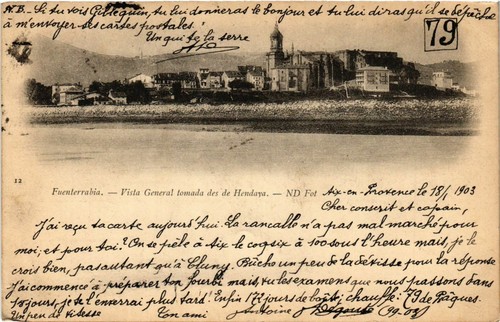 N.B. Si tu vois Gillequin, tu lui donneras le bonjour et tu lui diras qu'il se dépêche
à m'envoyer ses cartes postales.
Un qui te la serre
79
12
Fuenterrabia. — Vista General tomada des de Hendaya. — ND Fot
Aix-en-Provence le 18/1 1903
Cher conscrit et copain,
J'ai reçu ta carte aujourd'hui. La n'a pas mal marché pour
moi; et pour toi? On se pèle à Aix le à 100 sous l'heure mais, je le
crois bien, pas autant qu'à Cluny. un peu de la pour la réponse
J'ai commencé à préparer ton fourbi mais, tu les examens que nous passons dans
10 jours, je te l'enverrai plus tard! Enfin 172 jours de chauffe! 79 de Pâques.
Un peu de vitesse
Ton ami
Antoine